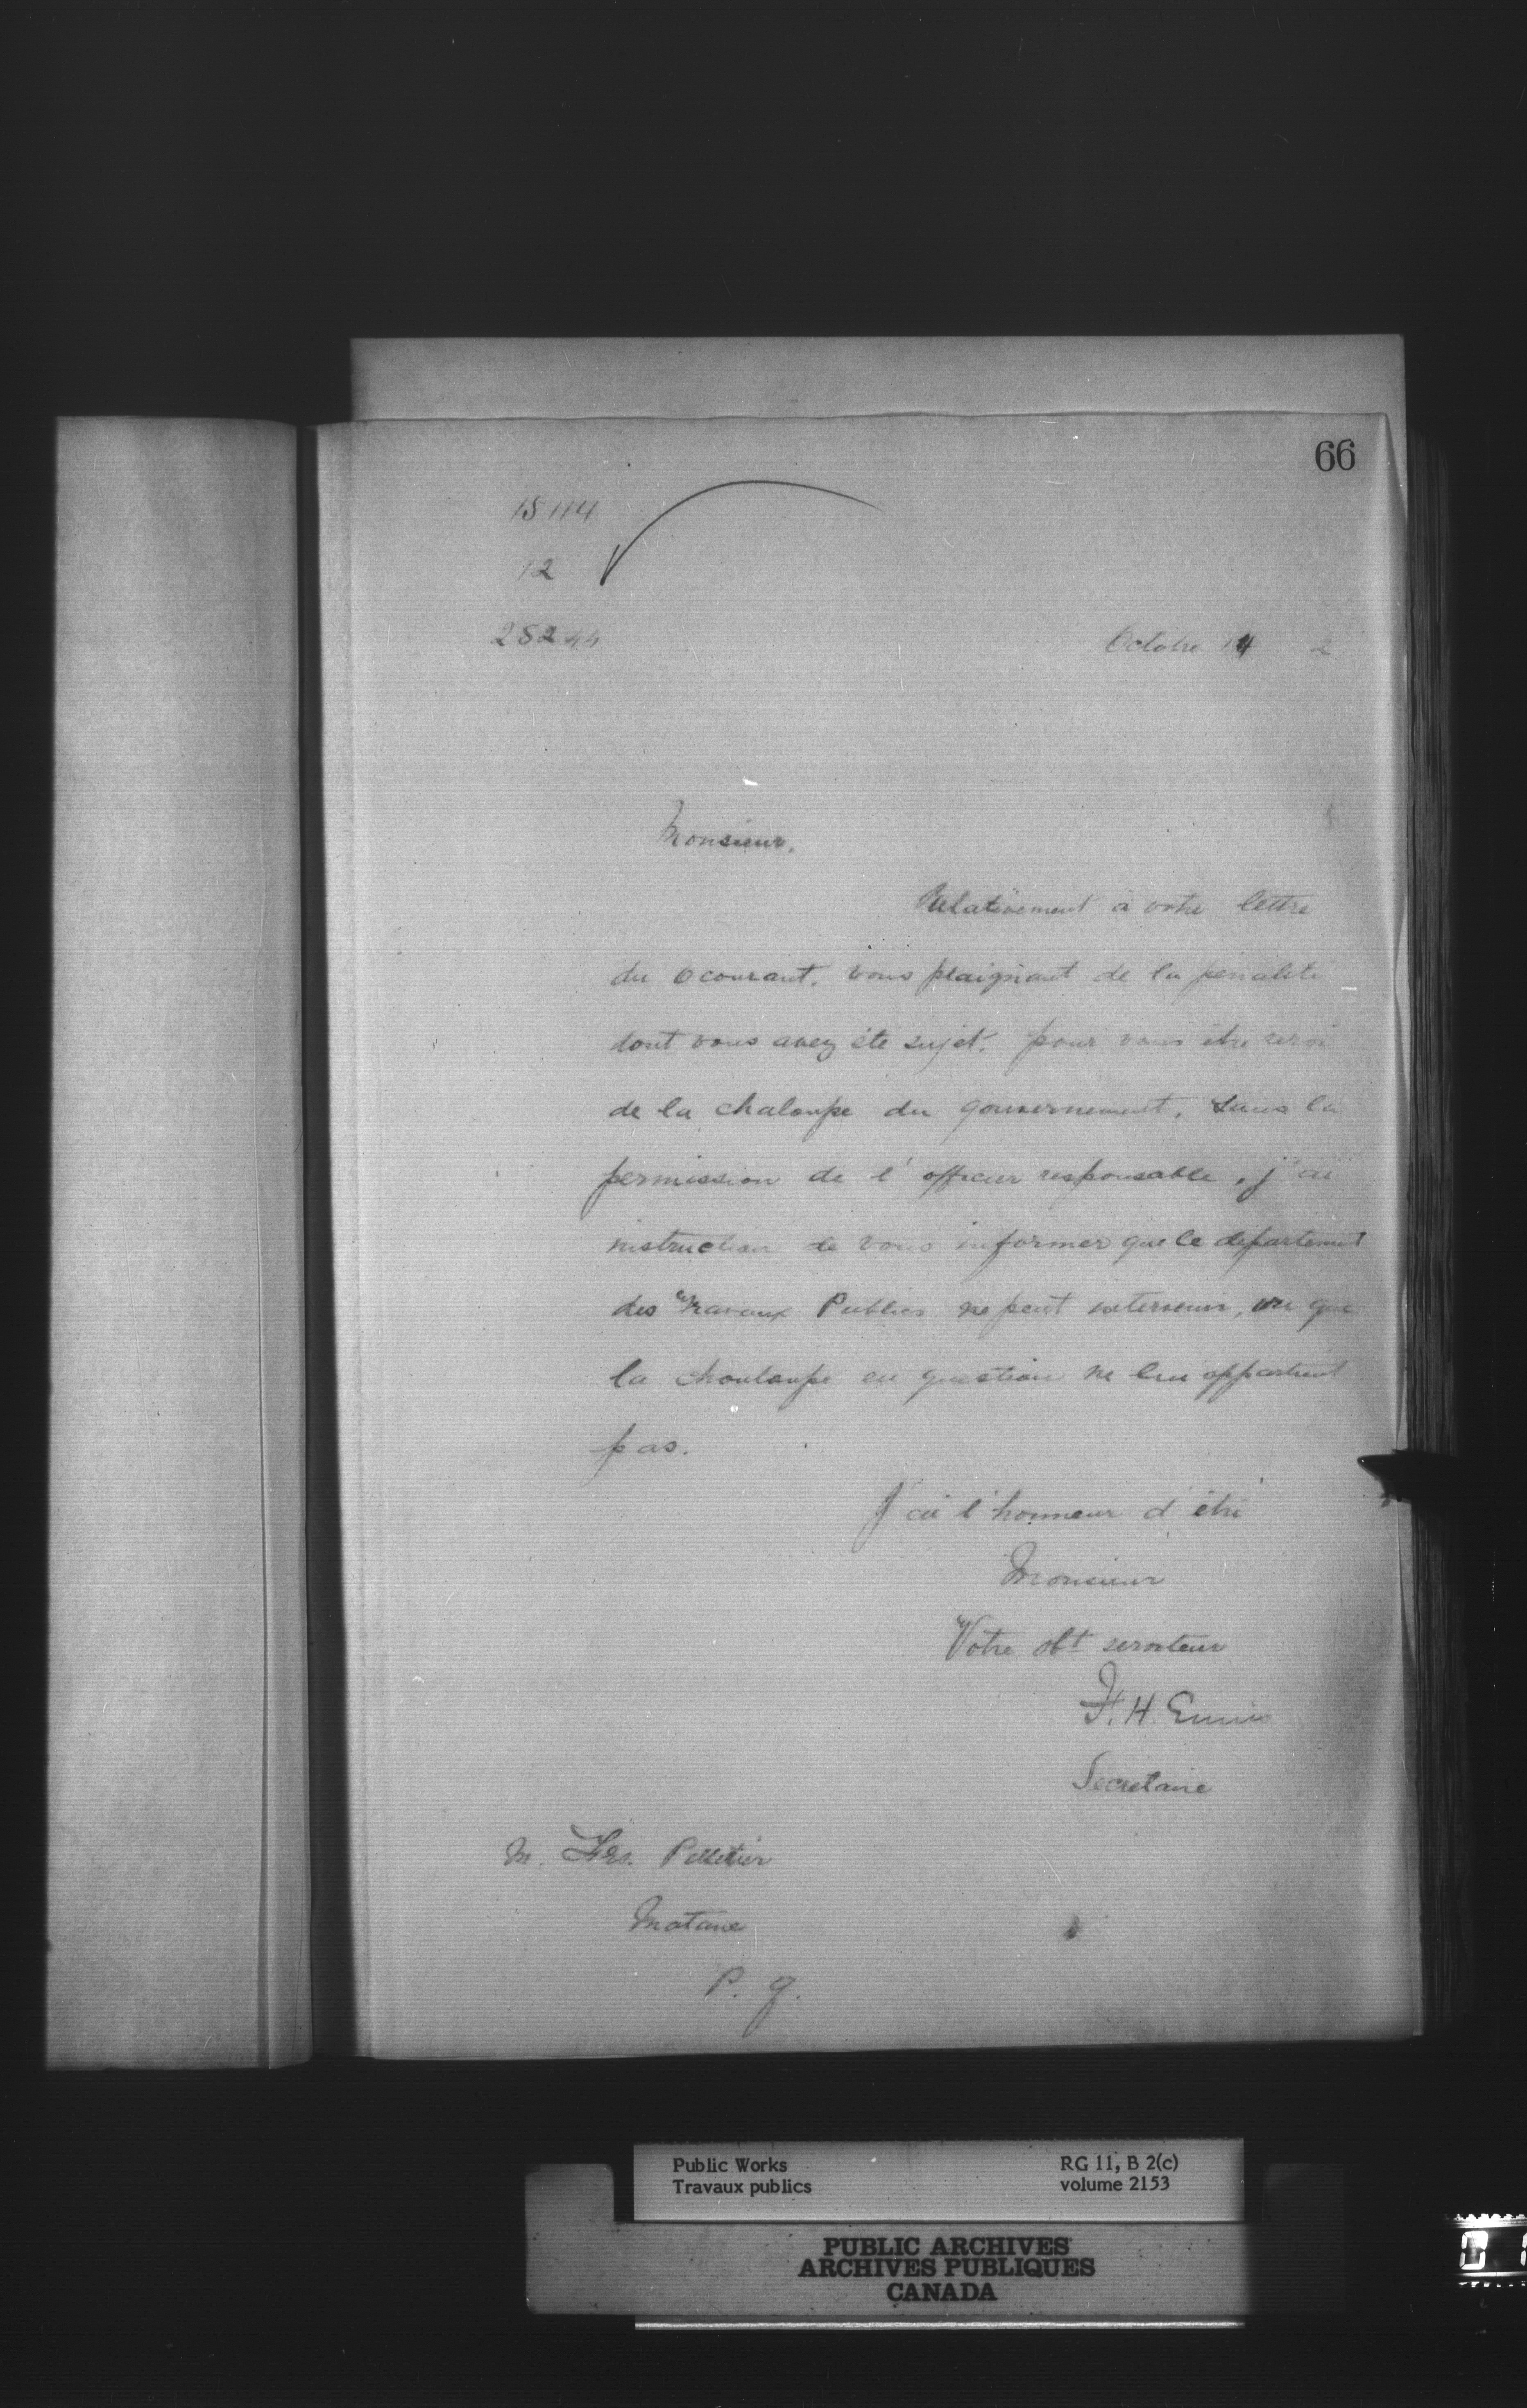 66
15114
12
25244
Octobre 14 2
Monsieur,
Relativement à votre lettre
du 6 courant, vous plaignant de la penalité
dont vous avez été sujet, pour vous être servi
de la chaloupe du gouvernement, sans la
permission de l'officier responsable, j'ai
instruction de vous informer que le departement
des Travaux Publics ne peut intervenir, vu que
la chouloupe en question ne lui appartient
pas.
J'ai l'honneur d'être
Monsieur
Votre obt serviteur
F. H. Ennis
Secretaire
M. Frs. Pelletier
Matane
P. Q.
Public Works RG 11, B 2(c)
Travaux publics volume 2153
PUBLIC ARCHIVES
ARCHIVES PUBLIQUES
CANADA